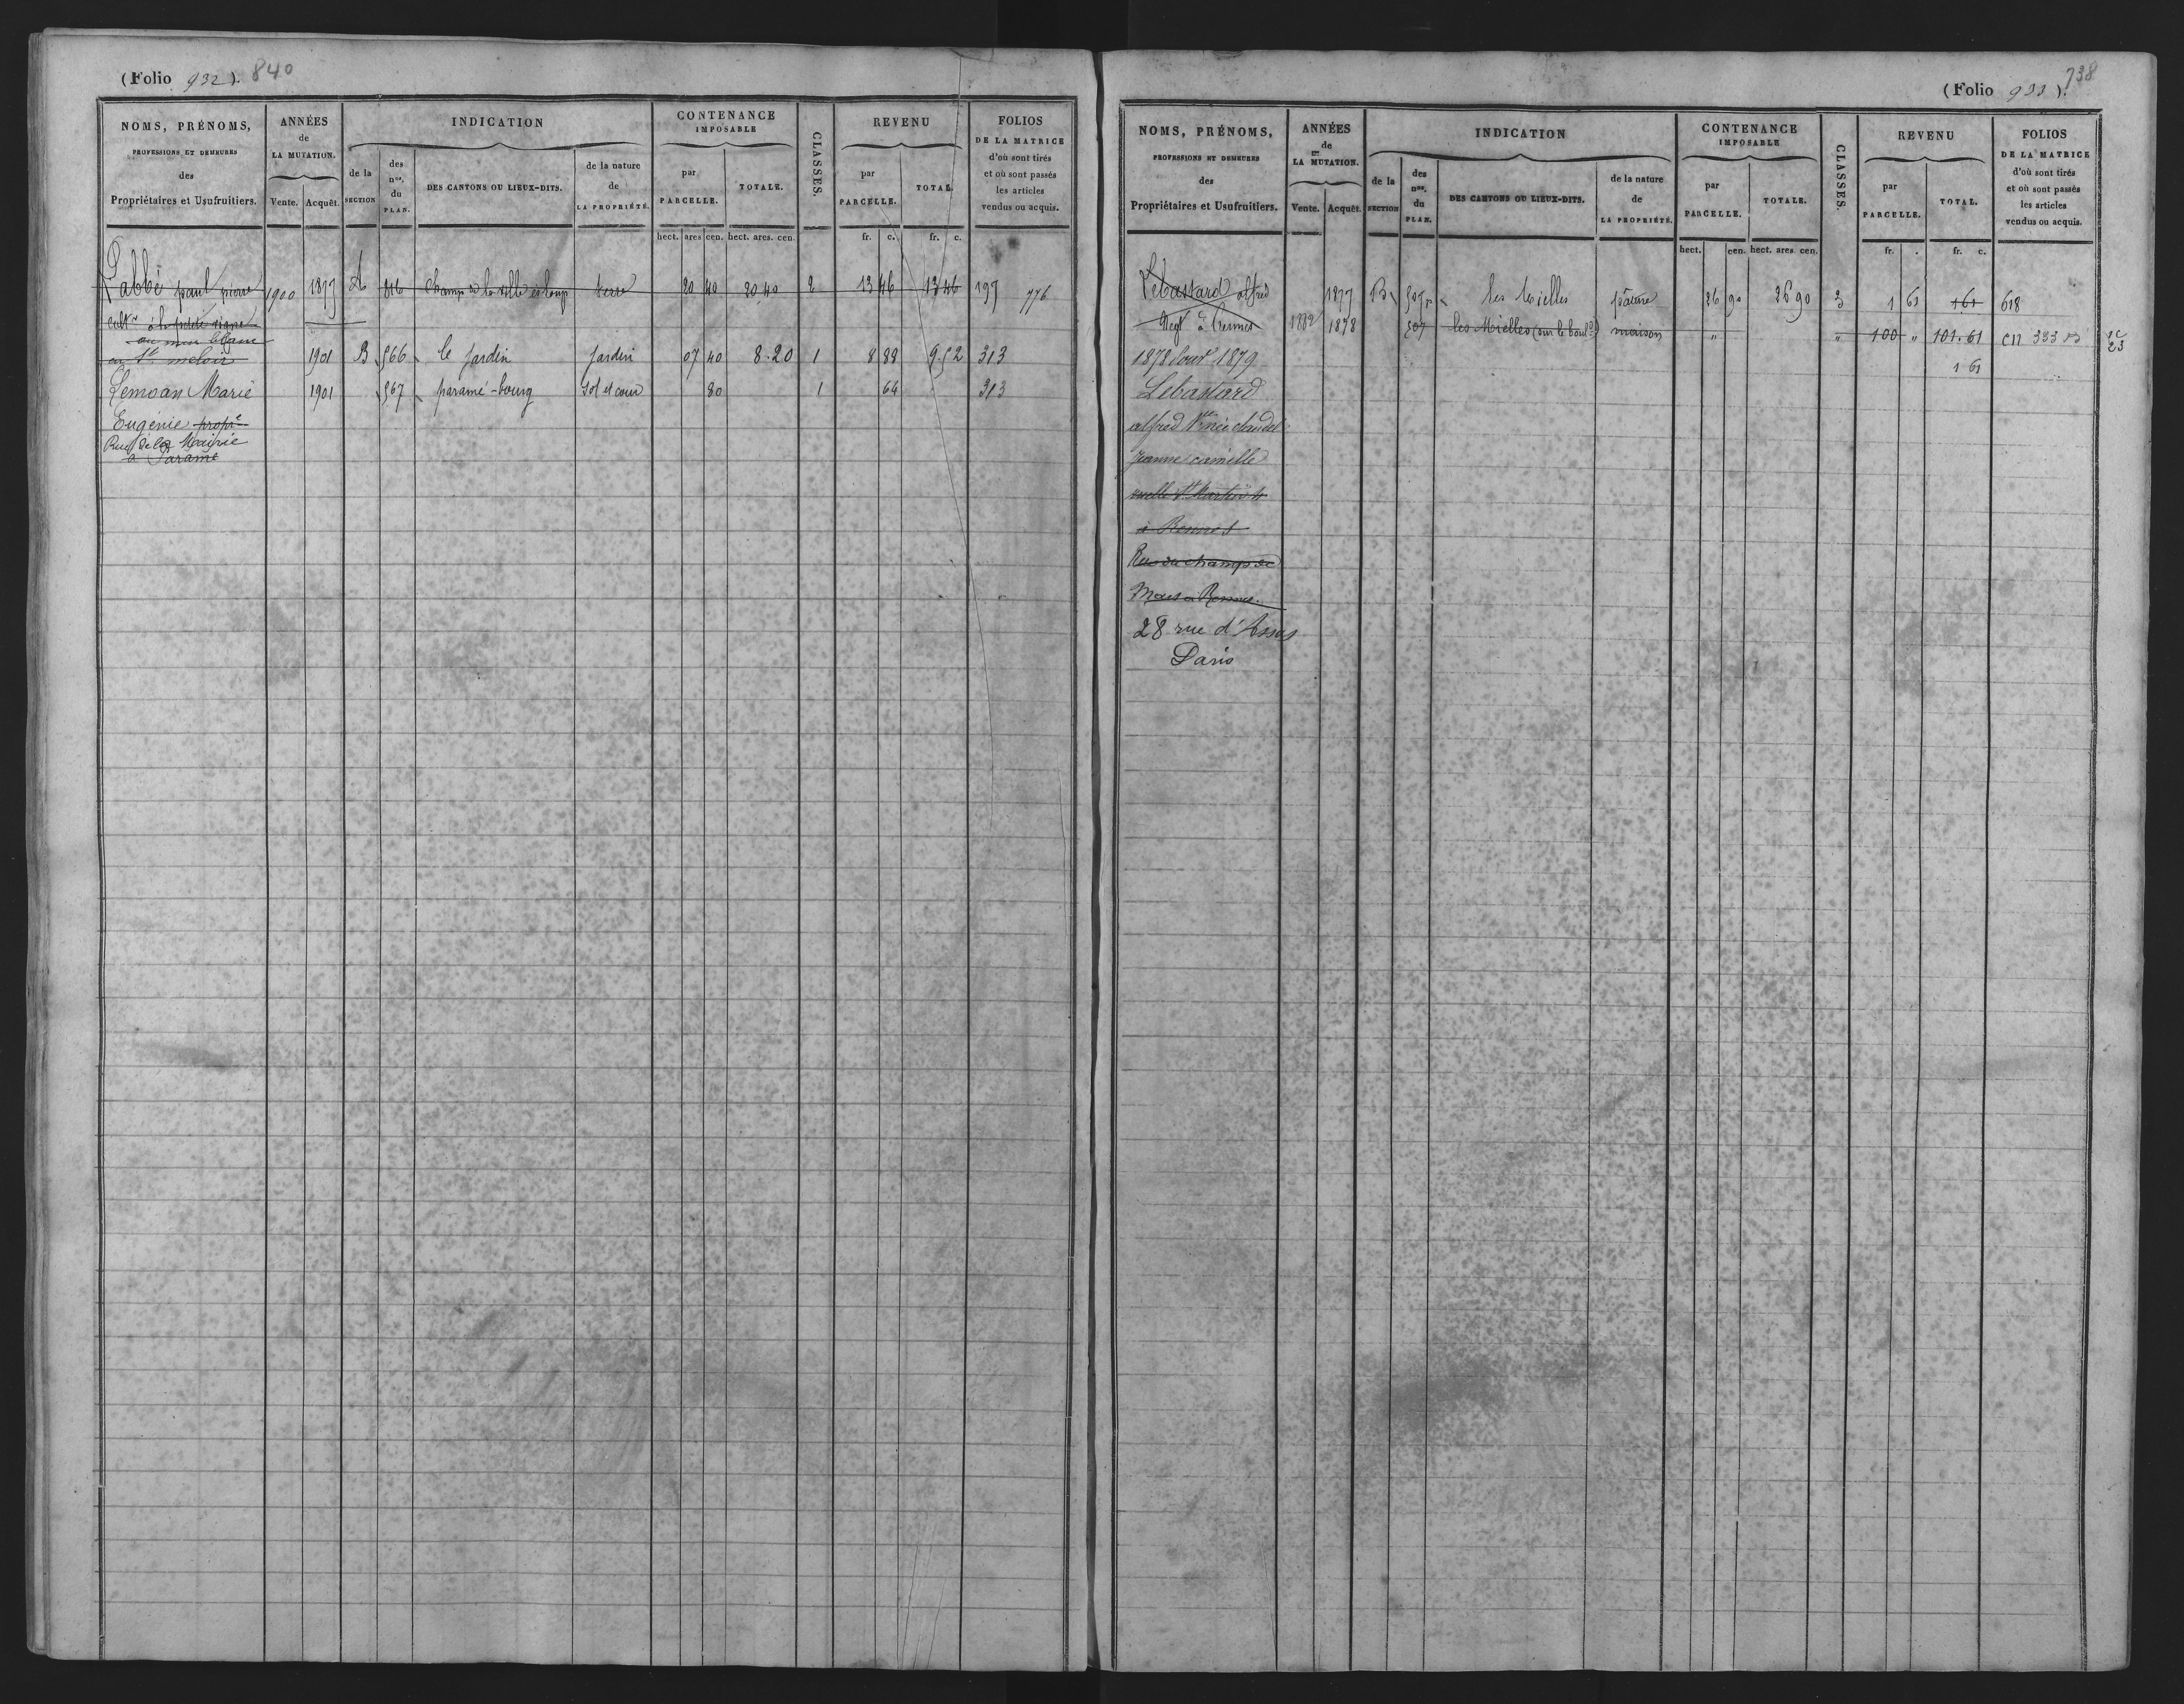 (Folio 932). 840
NOMS, PRÉNOMS,
PROFESSIONS ET DEMEURES
des
Propriétaires et Usufruitiers.
ANNÉES
de
LA MUTATION.
Vente. Acquêt.
INDICATION
de la
SECTION
des
nos.
du
PLAN.
DES CANTONS OU LIEUX-DITS.
de la nature
de
LA PROPRIÉTÉ.
CONTENANCE
IMPOSABLE
par
PARCELLE.
TOTALE.
CLASSES.
REVENU
par
PARCELLE.
TOTAL
FOLIOS
DE LA MATRICE
d'où sont tirés
et où sont passés
les articles
vendus ou acquis.
hect. ares cen. hect. ares. cen. fr. c. fr. c.
Labbé paul pierre 1900 1877 A 816 champ de la ville es loup terre 20 40 20 40 2 13 46 13 46 197 776
cultr à la petite
au mur blanc
en St meloir 1901 B 566 le jardin jardin 07 40 8.20 1 8 88 9.52 313
Lemoan Marie 1901 567 paramé-bourg sol et cour 80 1 64 313
Eugénie propre
Rue de la Mairie
à Paramé
(Folio 933). 738
NOMS, PRÉNOMS,
PROFESSIONS ET DEMEURES
des
Propriétaires et Usufruitiers.
ANNÉES
de
LA MUTATION.
Vente. Acquêt.
INDICATION
de la
SECTION
des
nos.
du
PLAN.
DES CANTONS OU LIEUX-DITS.
de la nature
de
LA PROPRIÉTÉ.
CONTENANCE
IMPOSABLE
par
PARCELLE.
TOTALE.
CLASSES.
REVENU
par
PARCELLE.
TOTAL.
FOLIOS
DE LA MATRICE
d'où sont tirés
et où sont passés
les articles
vendus ou acquis.
hect. cen. hect. ares. cen. fr. . fr. c.
Lebastard alfred 1877 B 507p les Mielles pâture 26 90 26 90 3 1 61 1 61 618
Negt à Rennes 1882 1878 507 les Mielles (sur le boulD) maison " " 100 " 101.61 Cn 333
1878 1879 1 61
Lebastard
alfred Ve née claudel
jeanne camille
ruelle St Martin
à Rennes
Rue du champ de
Mars à Rennes.
28 rue d'Assas
Paris